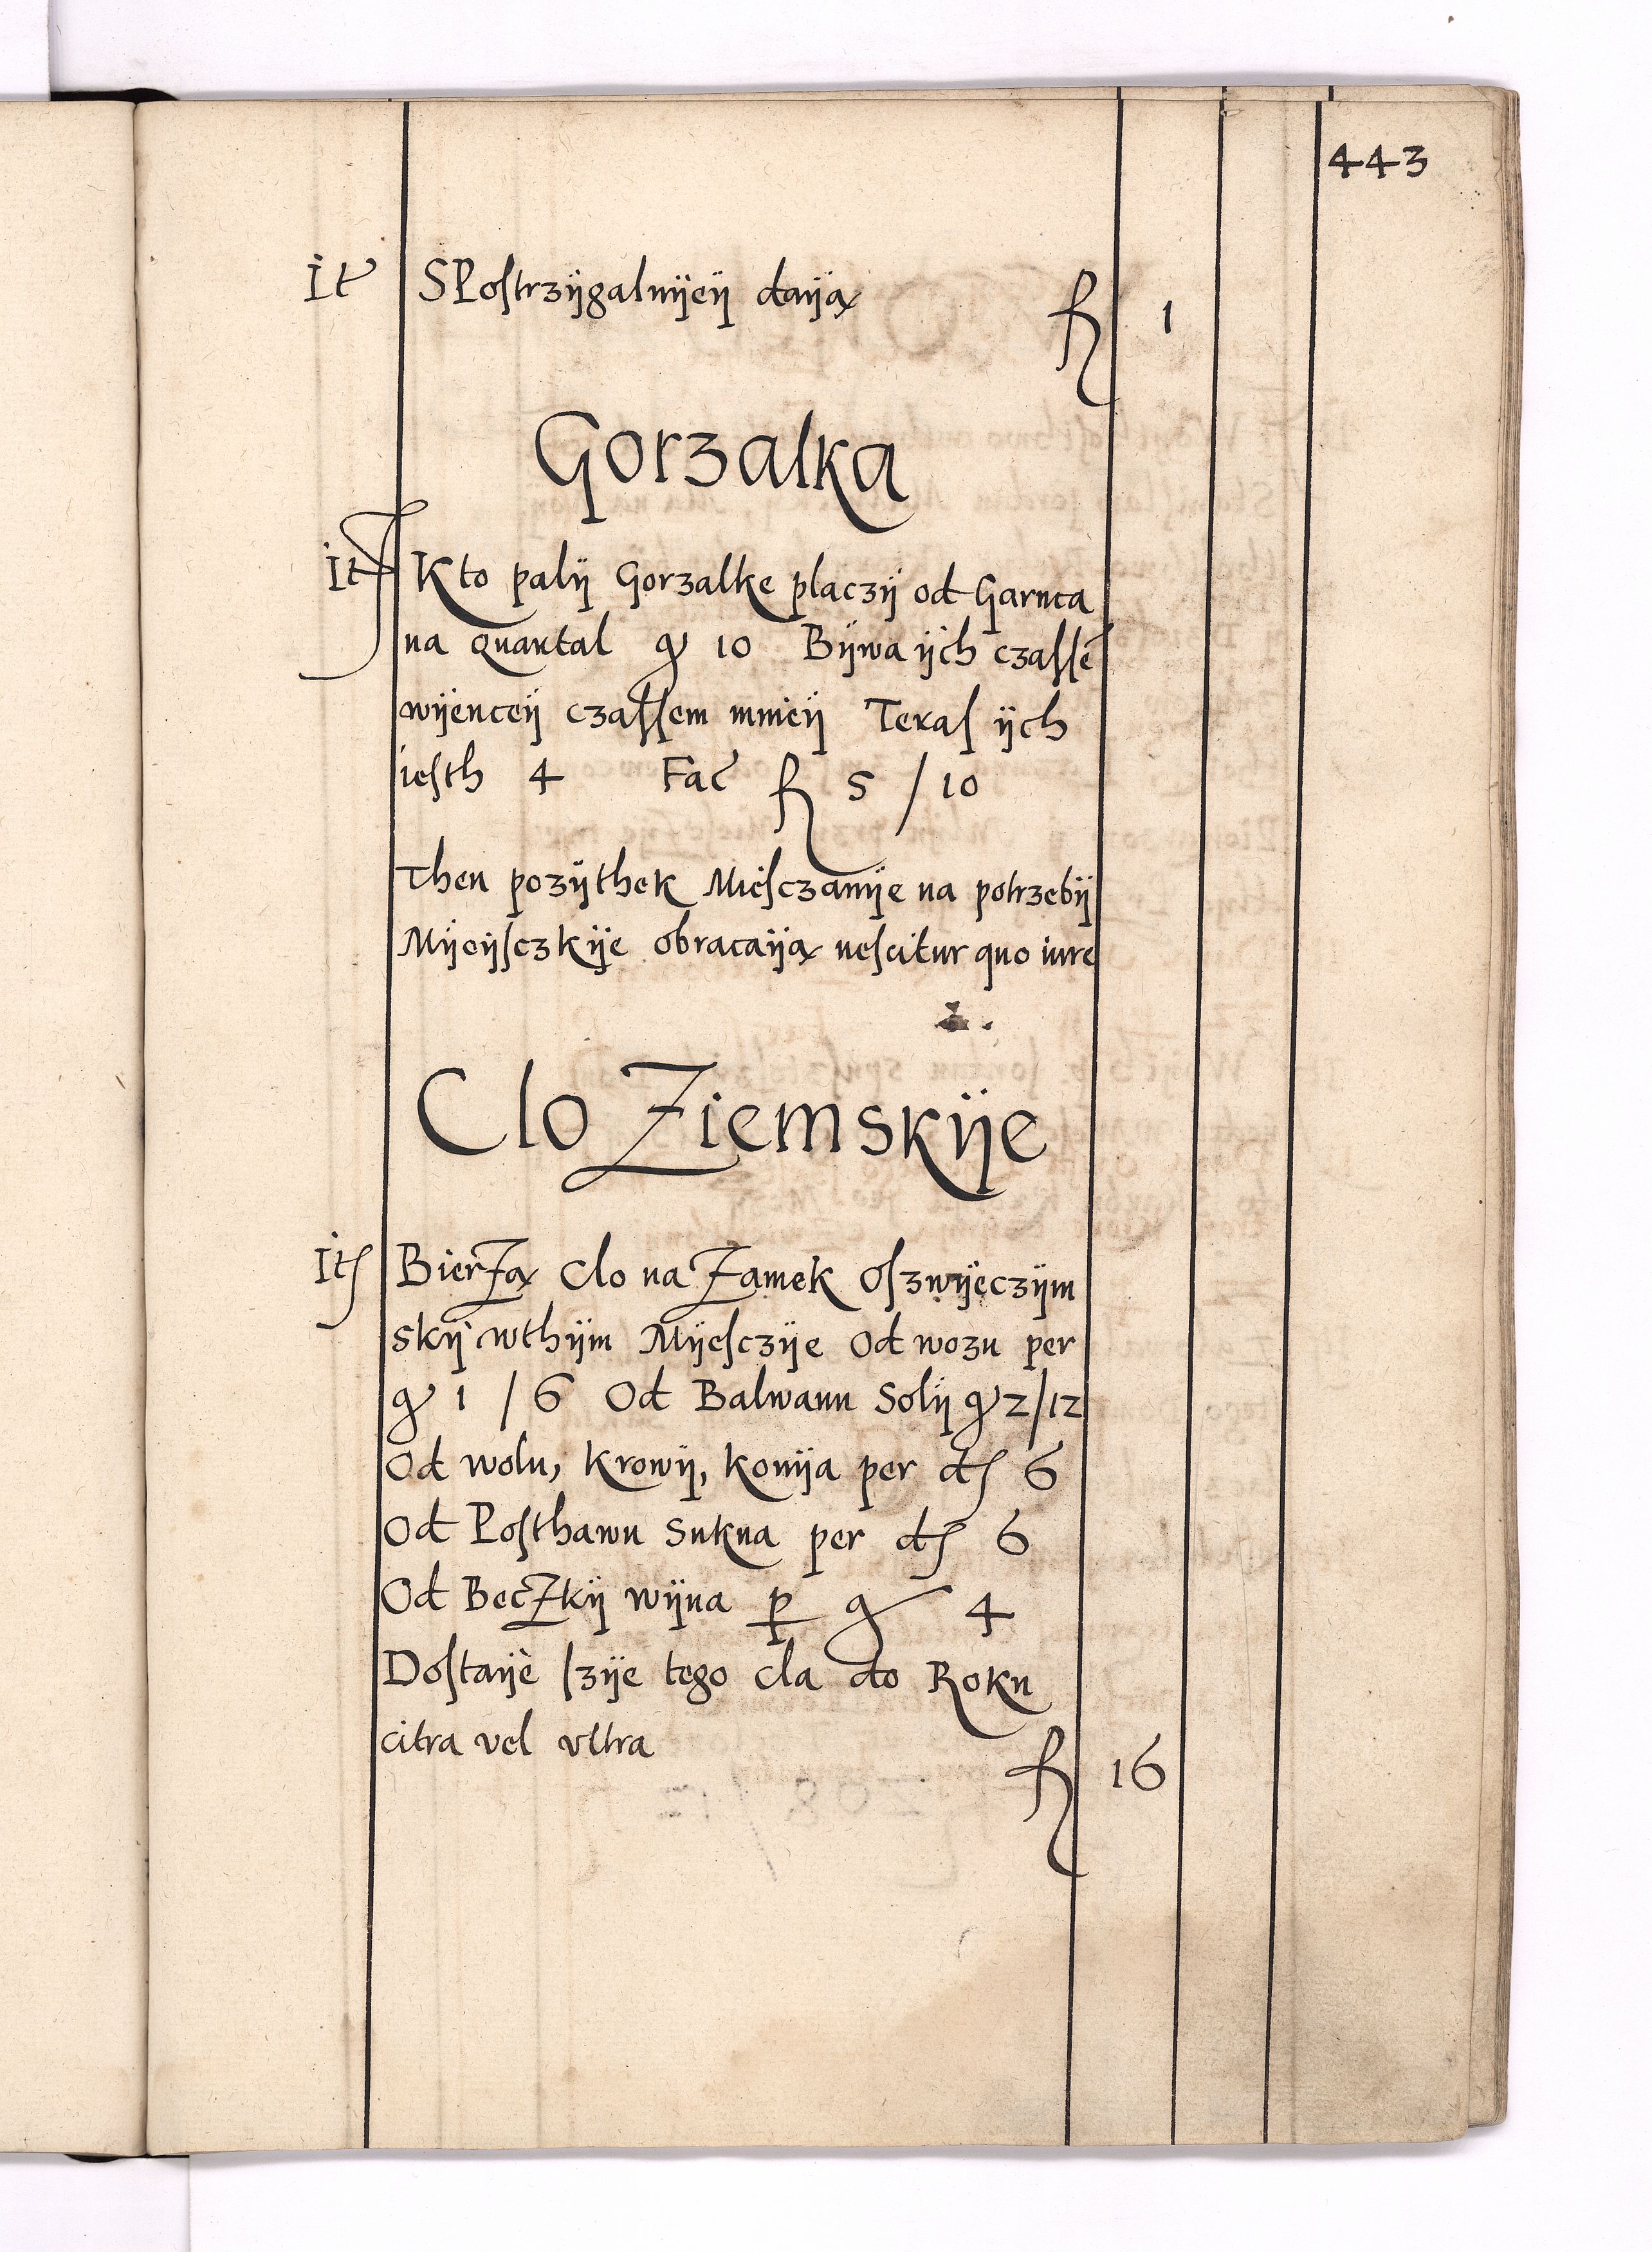 443
It SPostrzÿgalnÿcÿ daÿą fl 1
Gorzalka
It Kto palÿ Gorzalke placzÿ od Garnca
na quartal gr 10 Bÿwa ÿch czassē
wÿenceÿ czassem mnieÿ Teras ÿch
iesth 4 Fac̄ fl 5 / 10
Then pozÿthek Miesczanÿe na potrzebÿ
Mÿeÿsczkÿe obracaÿą nescitur quo iure
Clo Ziemskÿe
It Bierzą Clo na Zamek Oszwÿeczÿm
skÿ wthÿm Mÿesczÿe Od wozu per
gr 1 / 6 Od Balwanu Solÿ gr 2/12
Od wolu, Krowÿ, konÿa per d 6
Od Posthawu Sukna per d 6
Od Beczkÿ wÿna ꝑ gr 4
Dostaÿe szÿe tego cla do Roku
citra vel vltra
fl 16